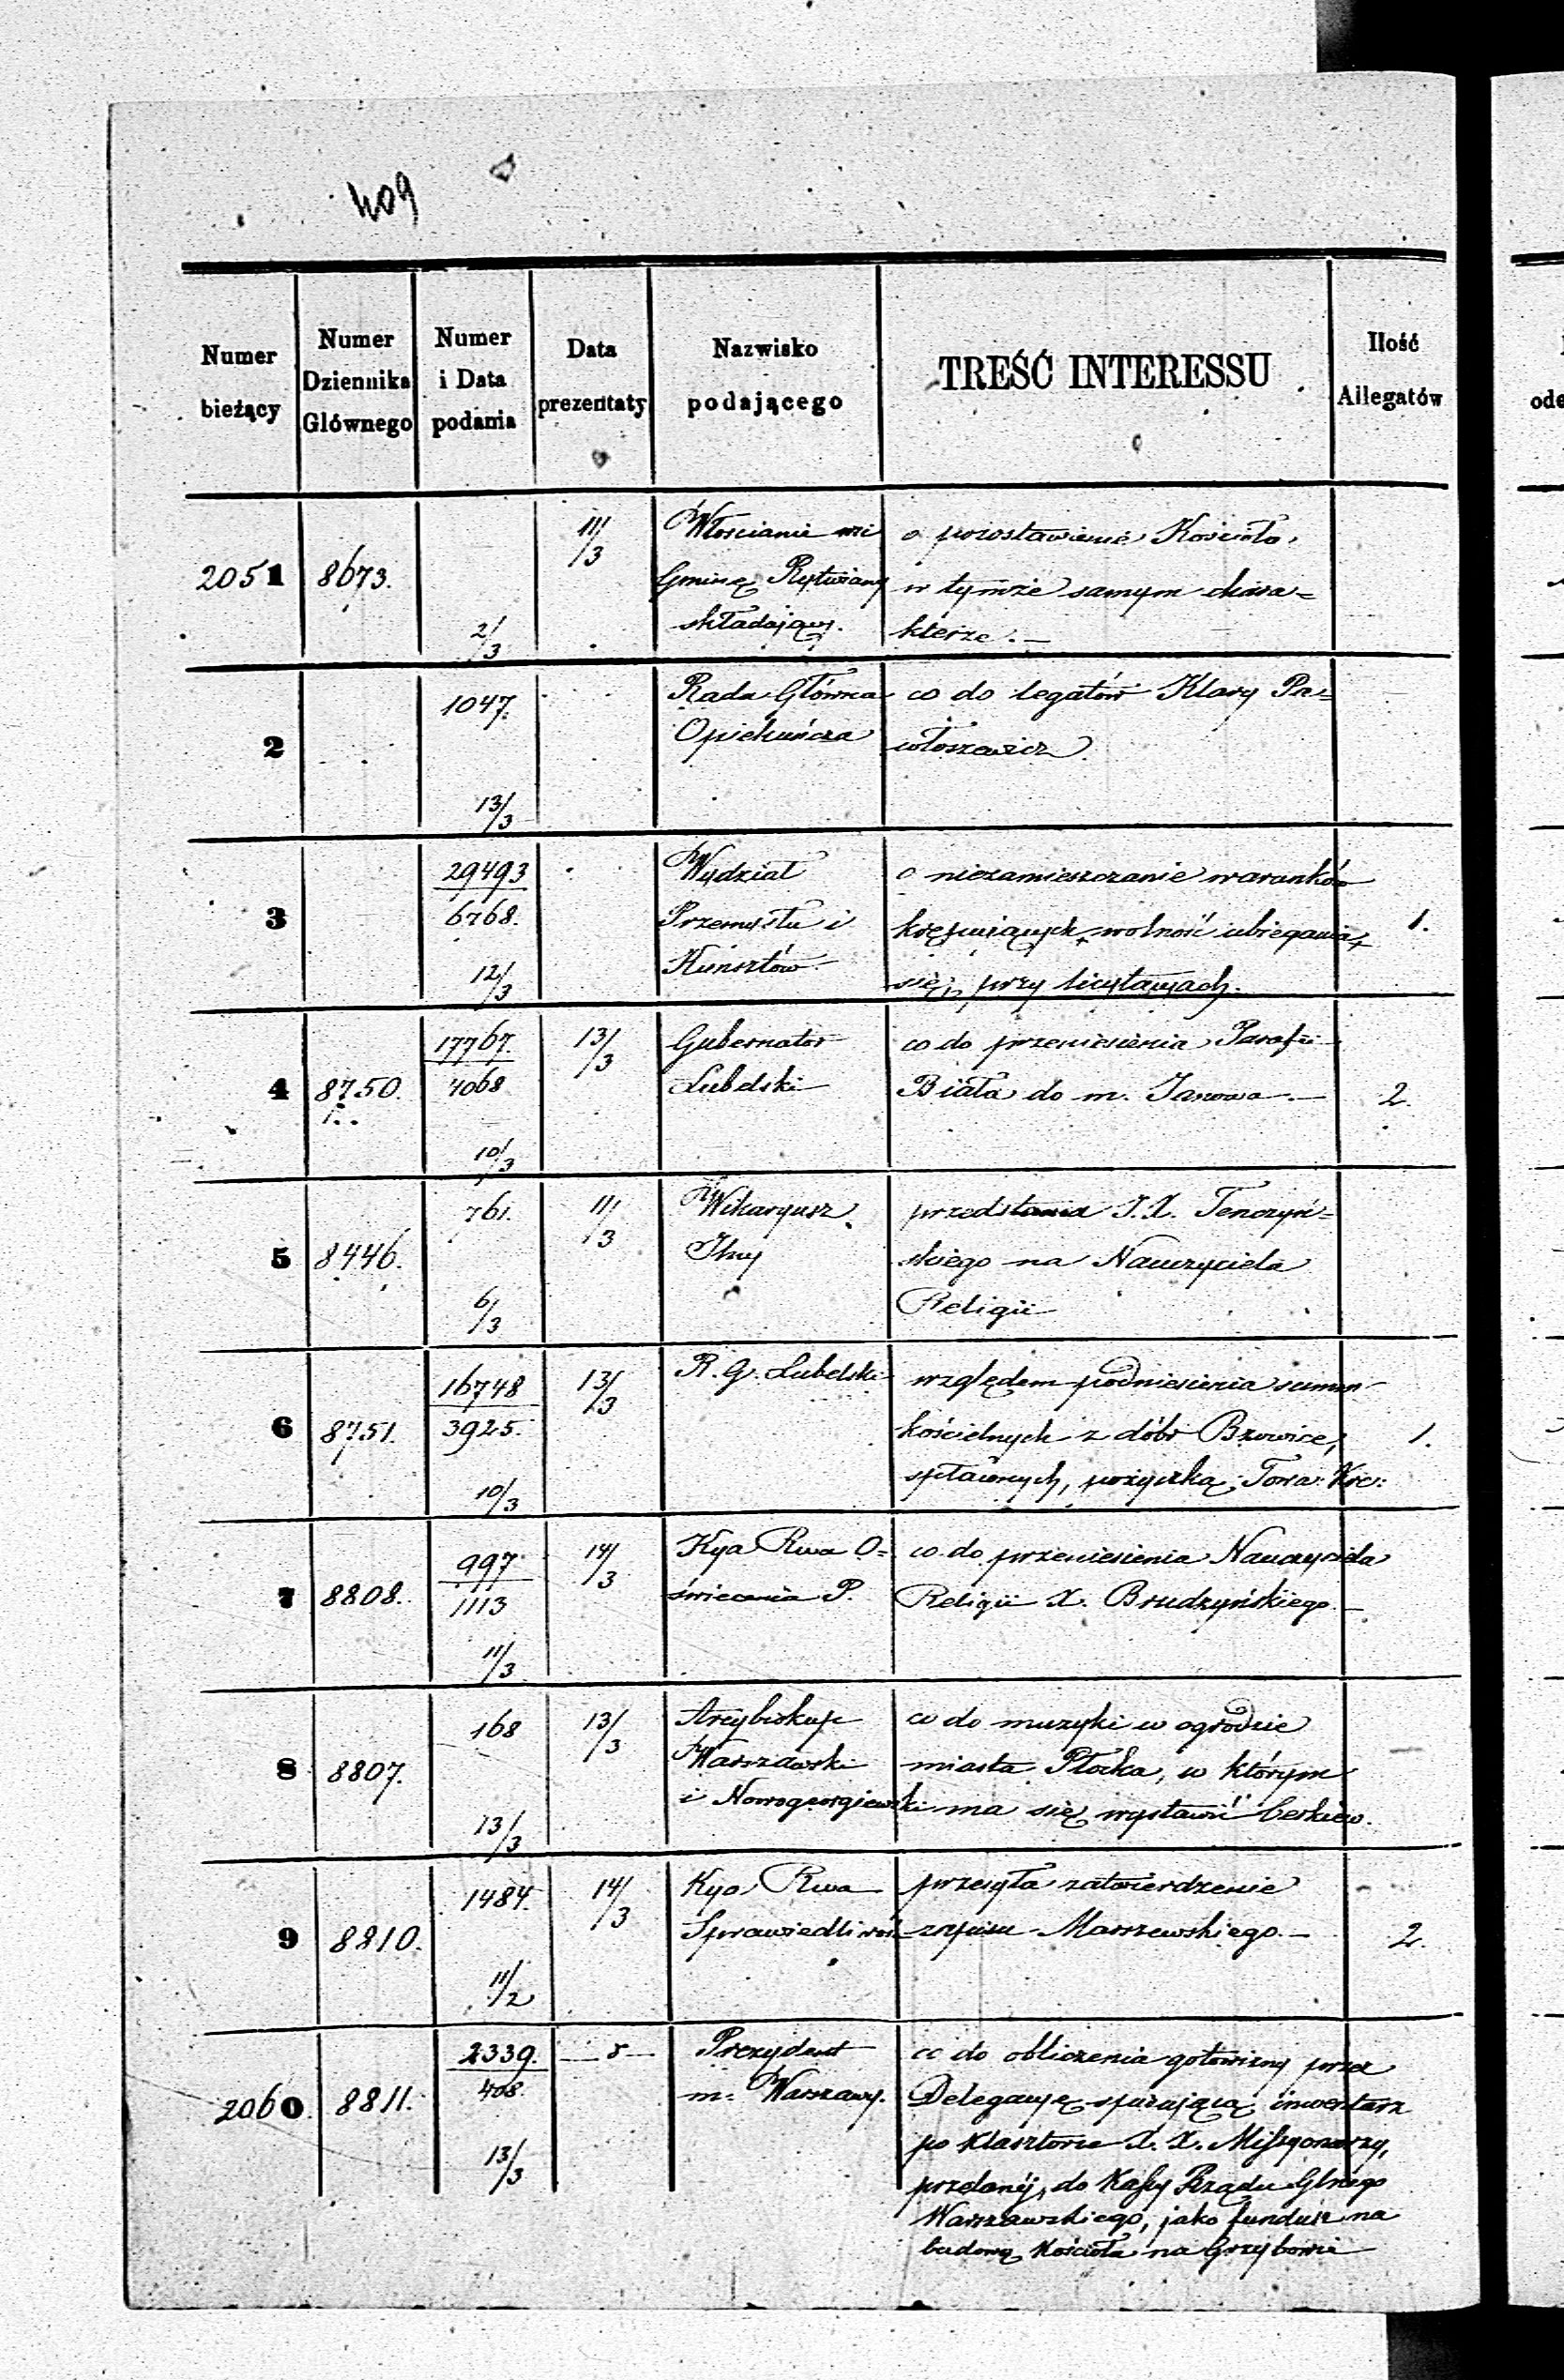 409
Numer bieżący
Numer Dziennika Głównego
Numer i Data podania
Data prezentaty
Nazwisko podającego
TREŚĆ INTERESSU
Ilość Allegatów
2051 8673. 2/3 11/3
Włościanie
Gminę Rytwiany
składający.
o pozostawienie Kościoła
w tymże samym chara=
kterze.—
2 1047. 13/3
Rada Główna
Opiekuńcza
co do legatów Klary Pa=
włoszewicz
3 29493/6768. 12/3
Wydział
Przemysłu i
Kunsztów
o niezamieszczanie warunków
krępujących wolność ubiegania
się, przy licytacyach.
1.
4 8750. 17767./4068 10/3 13/3
Gubernator
Lubelski
co do przeniesienia Parafii
Biała do m. Janowa.—
2.
5 8446. 761. 6/3 11/3
Wikaryusz
przedstawia J.X. Tenczyń=
skiego na Nauczyciela
Religii
6 8751. 16748/3925. 10/3 13/3
R. G. Lubelski
względem podniesienia summ
kościelnych z dóbr Bzowice,
spłaconych, pożyczką Towa: Kre:
1.
7 8808. 997/1113 11/3 14/3
Kya Rwa O=
świecenia P.
co do przeniesienia Nauczyciela
Religii X. Brudzyńskiego.—
8 8807. 168 13/3 13/3
Arcybiskup
Warszawski
i Nowogeorgiewski
co do muzyki w ogrodzie
miasta Płocka, w którym
ma się wystawić Cerkiew.
9 8810. 1484. 11/2 14/3
Kya Rwa
Sprawiedliwoś=
przesyła zatwierdzenie
zapisu Marszewskiego.—
2.
2060. 8811. 2339./408. 13/3
Prezydent
m. Warszawy.
co do obliczenia gotowizny przez
Delegacyę spisującą inwentarz
po Klasztorze X. X. Missyonarzy,
przelanéj, do Kassy Rządu Glnego
Warszawskiego, jako fundusz na
budowę Kościoła na Grzybowie